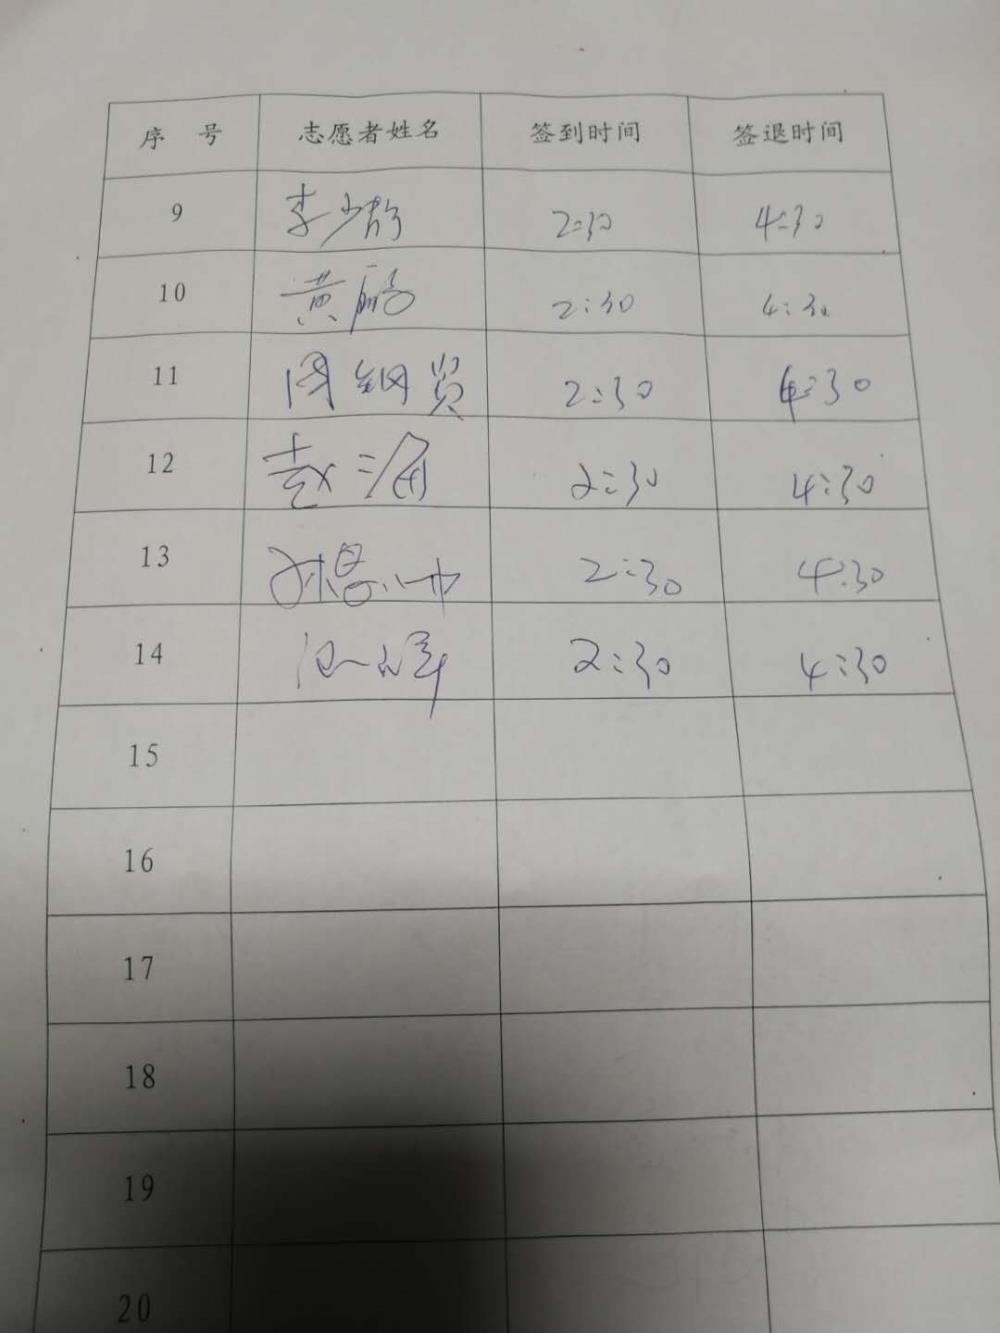 序 号 志愿者姓名 签到时间 签退时间
9 李少龄 2:30 4:30
10 黄 2:30 4:30
11 周纲贤 2:30 4:30
12 赵海 2:30 4:30
13 2:30 4:30
14 2:30 4:30
15
16
17
18
19
20